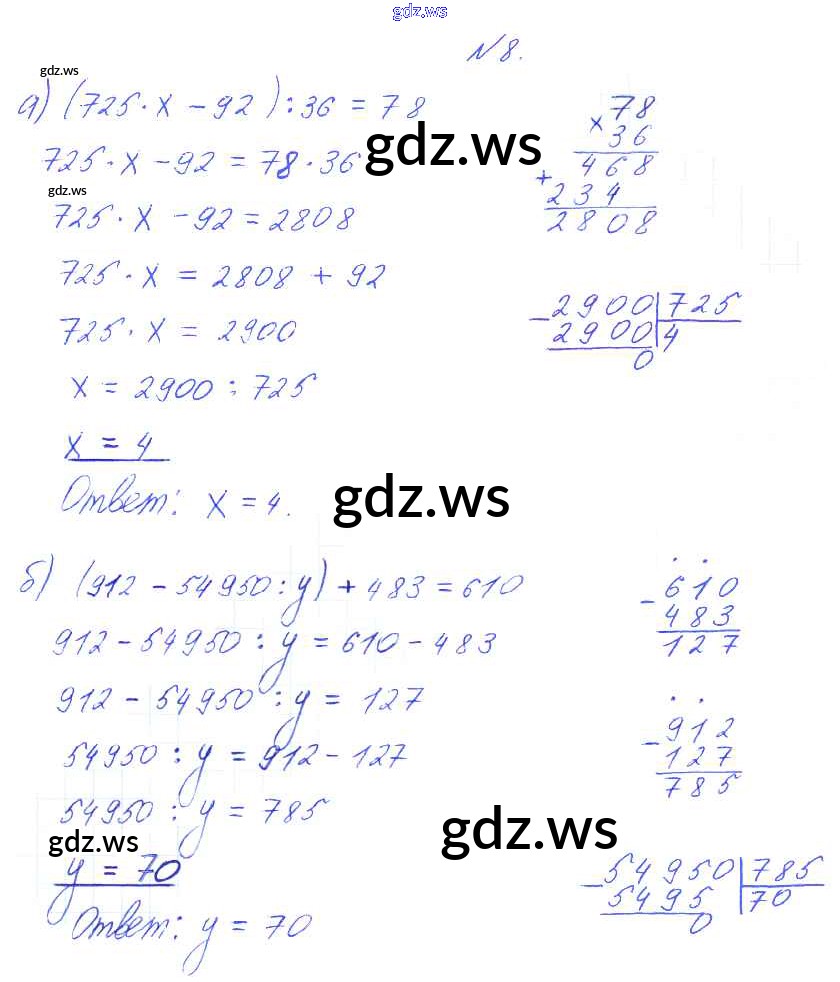 gdz.ws
N 8.
gdz.ws
а) (725 · x − 92) : 36 = 78
725 · x − 92 = 78 · 36
gdz.ws
gdz.ws
725 · x − 92 = 2808
725 · x = 2808 + 92
725 · x = 2900
x = 2900 : 725
x = 4
Ответ: x = 4.
gdz.ws
× 78
36
+ 468
234
2808
− 2900 | 725
2900 | 4
0
б) (912 − 54950 : y) + 483 = 610
912 − 54950 : y = 610 − 483
912 − 54950 : y = 127
54950 : y = 912 − 127
54950 : y = 785
gdz.ws
gdz.ws
y = 70
Ответ: y = 70
− 610
483
127
− 912
127
785
− 54950 | 785
5495 | 70
0